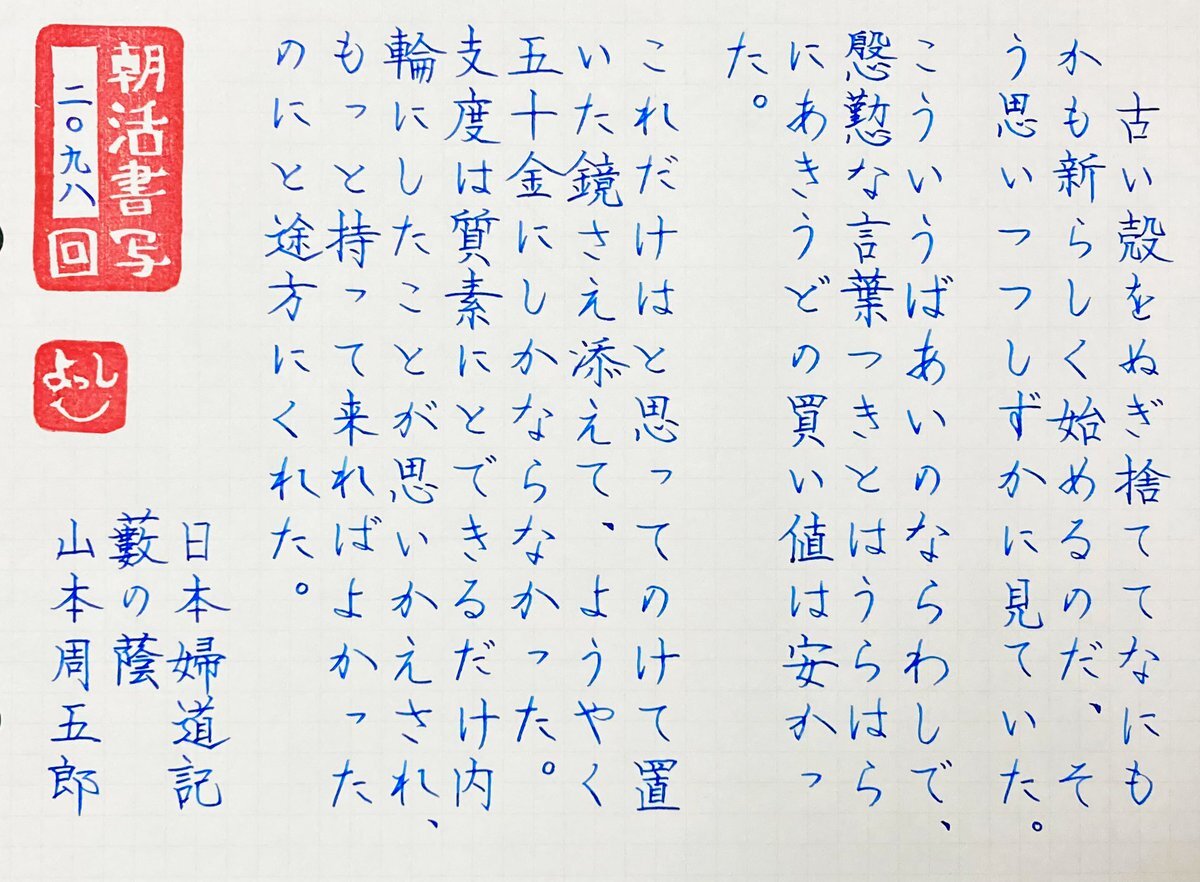 古い殻をぬぎ捨ててなにも
かも新らしく始めるのだ、そ
う思いつつしずかに見ていた。
こういうばあいのならわしで、
慇懃な言葉つきとはうらはら
にあきうどの買い値は安かっ
た。
これだけはと思ってのけて置
いた鏡さえ添えて、ようやく
五十金にしかならなかった。
支度は質素にとできるだけ内
輪にしたことが思いかえされ、
もっと持って来ればよかった
のにと途方にくれた。
日本婦道記
藪の蔭
山本周五郎
朝活書写
二〇九八回
よっし